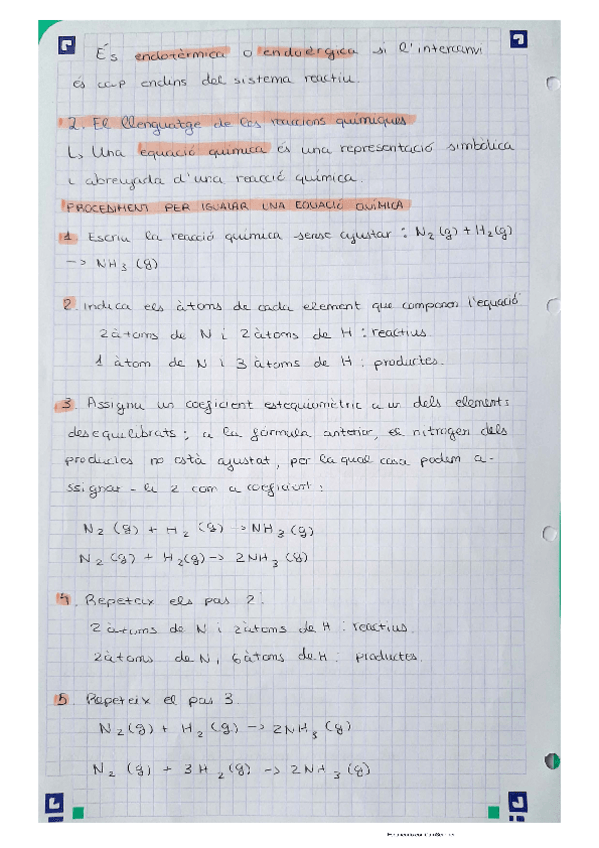 És endotèrmica o endoèrgica si l'intercanvi
és cap endins del sistema reactiu.
2. El llenguatge de les reaccions químiques
L, Una equació química és una representació simbòlica
i abreujada d'una reacció química.
PROCEDIMENT PER IGUALAR UNA EQUACIÓ QUÍMICA
1 Escriu la reacció química sense ajustar : N₂ (g) + H₂ (g)
-> NH₃ (g)
2. Indica els àtoms de cada element que componen l'equació
2 àtoms de N i 2 àtoms de H : reactius.
1 àtom de N i 3 àtoms de H : productes.
3. Assigna un coeficient estequiomètric a un dels elements
desequilibrats; a la fórmula anterior, el nitrogen dels
productes no està ajustat, per la qual cosa podem a-
ssignar - li 2 com a coeficient :
N₂ (g) + H₂ (g) -> NH₃ (g)
N₂ (g) + H₂ (g) -> 2NH₃ (g)
4. Repeteix els pas 2.
2 àtoms de N i 2 àtoms de H : reactius.
2 àtoms de N i 6 àtoms de H : productes.
5. Repeteix el pas 3.
N₂ (g) + H₂ (g) -> 2NH₃ (g)
N₂ (g) + 3H₂ (g) -> 2NH₃ (g)